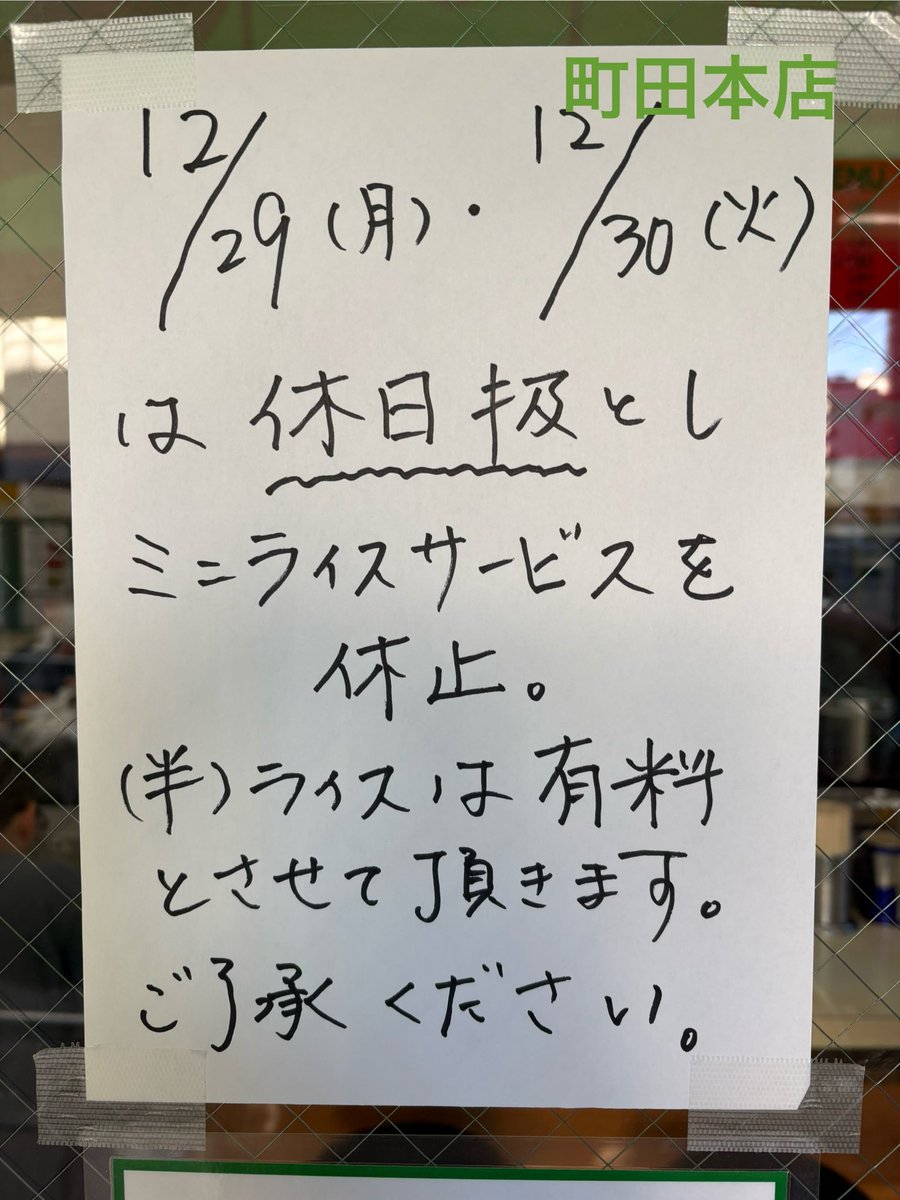 町田本店
12/29(月)・12/30(火)
は休日扱とし
ミニライスサービスを
休止。
(半)ライスは有料
とさせて頂きます。
ご了承ください。
MENU